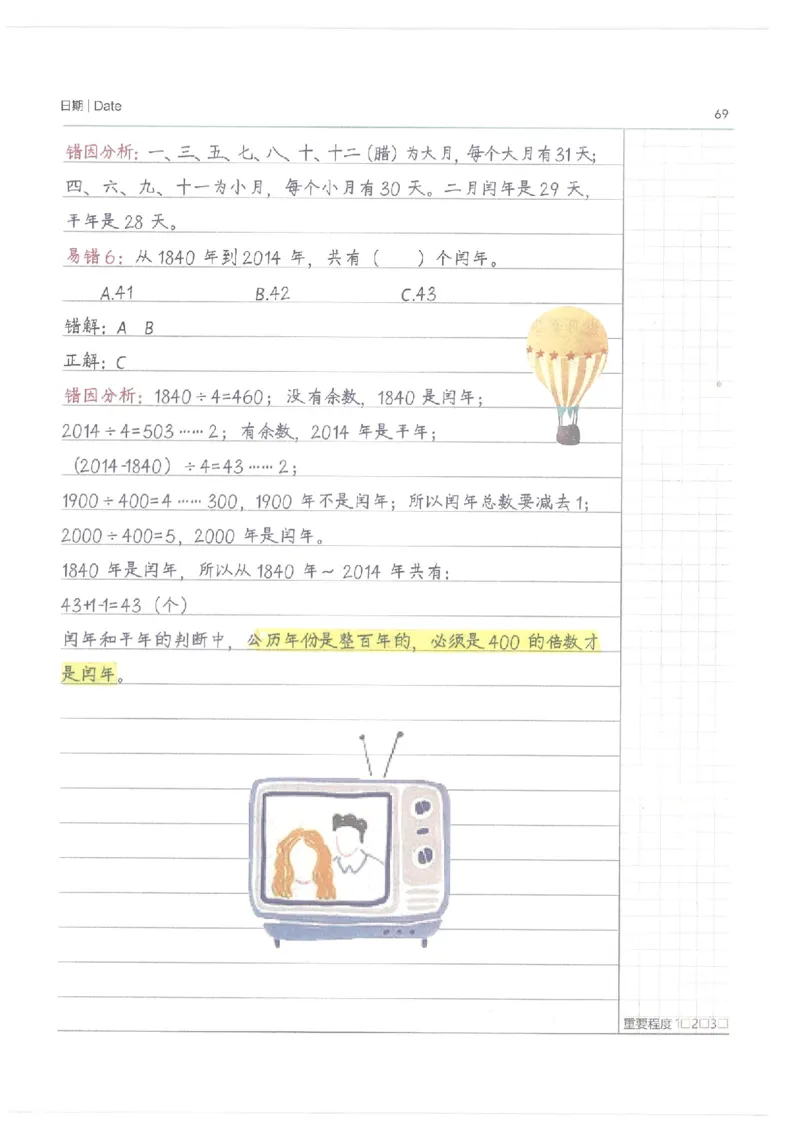 日期 | Date
69
错因分析：一、三、五、七、八、十、十二（腊）为大月，每个大月有31天；
四、六、九、十一为小月，每个小月有30天。二月闰年是29天，
平年是28天。
易错6：从1840年到2014年，共有（　）个闰年。
A.41 B.42 C.43
错解：A B
正解：C
错因分析：1840÷4=460；没有余数，1840是闰年；
2014÷4=503……2；有余数，2014年是平年；
（2014-1840）÷4=43……2；
1900÷400=4……300，1900年不是闰年；所以闰年总数要减去1；
2000÷400=5，2000年是闰年。
1840年是闰年，所以从1840年～2014年共有：
43+1-1=43（个）
闰年和平年的判断中，公历年份是整百年的，必须是400的倍数才
是闰年。
重要程度 1□2□3□